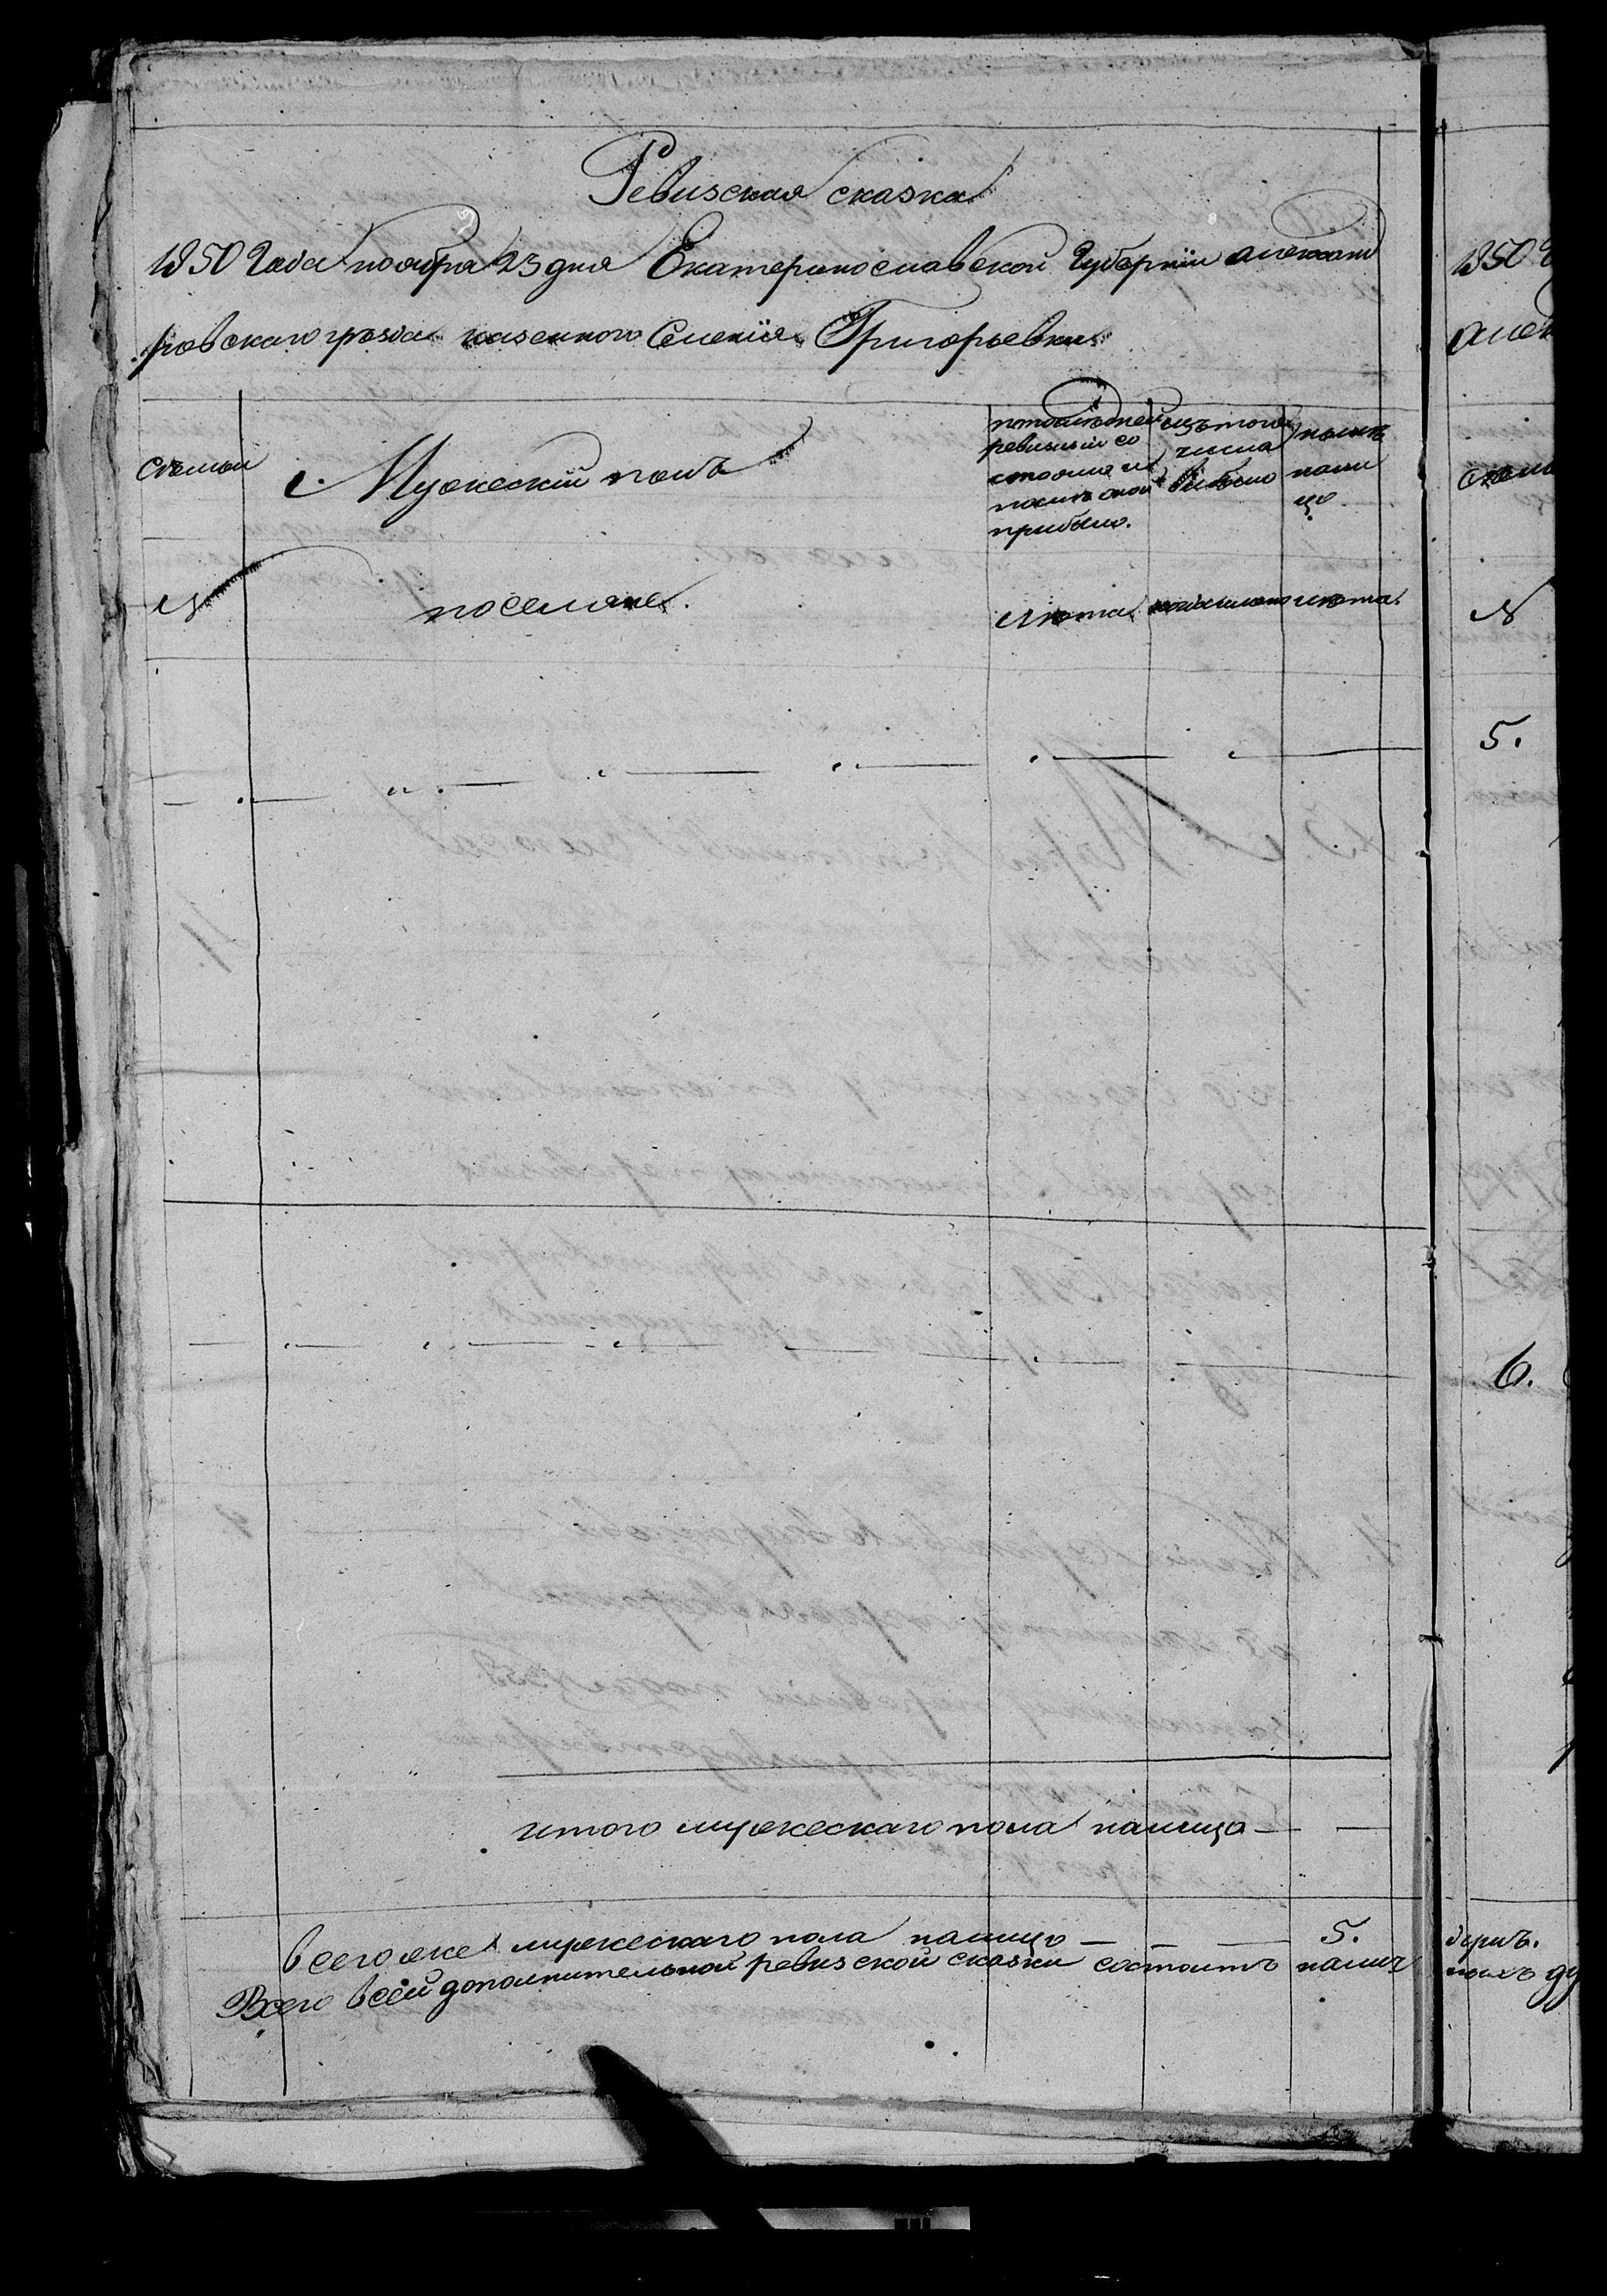 Ревизская сказка
1850 Года ноября 23 дня Екатеринославской Губернiи Александ
ровскаго уезда казенного Селенiя Григорьевки
Семьи
Мужескiй полъ
по последней
ревизiи со
стояло и
после оной
прибыло.
изъ того
числа
выбыло
ныне
нали
цо
№
поселяне.
лета
лета.
итого мужескаго пола налицо — —
всего же мужескаго пола налицо — — — 5.
Всего въ сей дополнительной ревизской сказки состоитъ налич
1850
алек
семь
№
5.
6.
душъ.
ныхъ ду